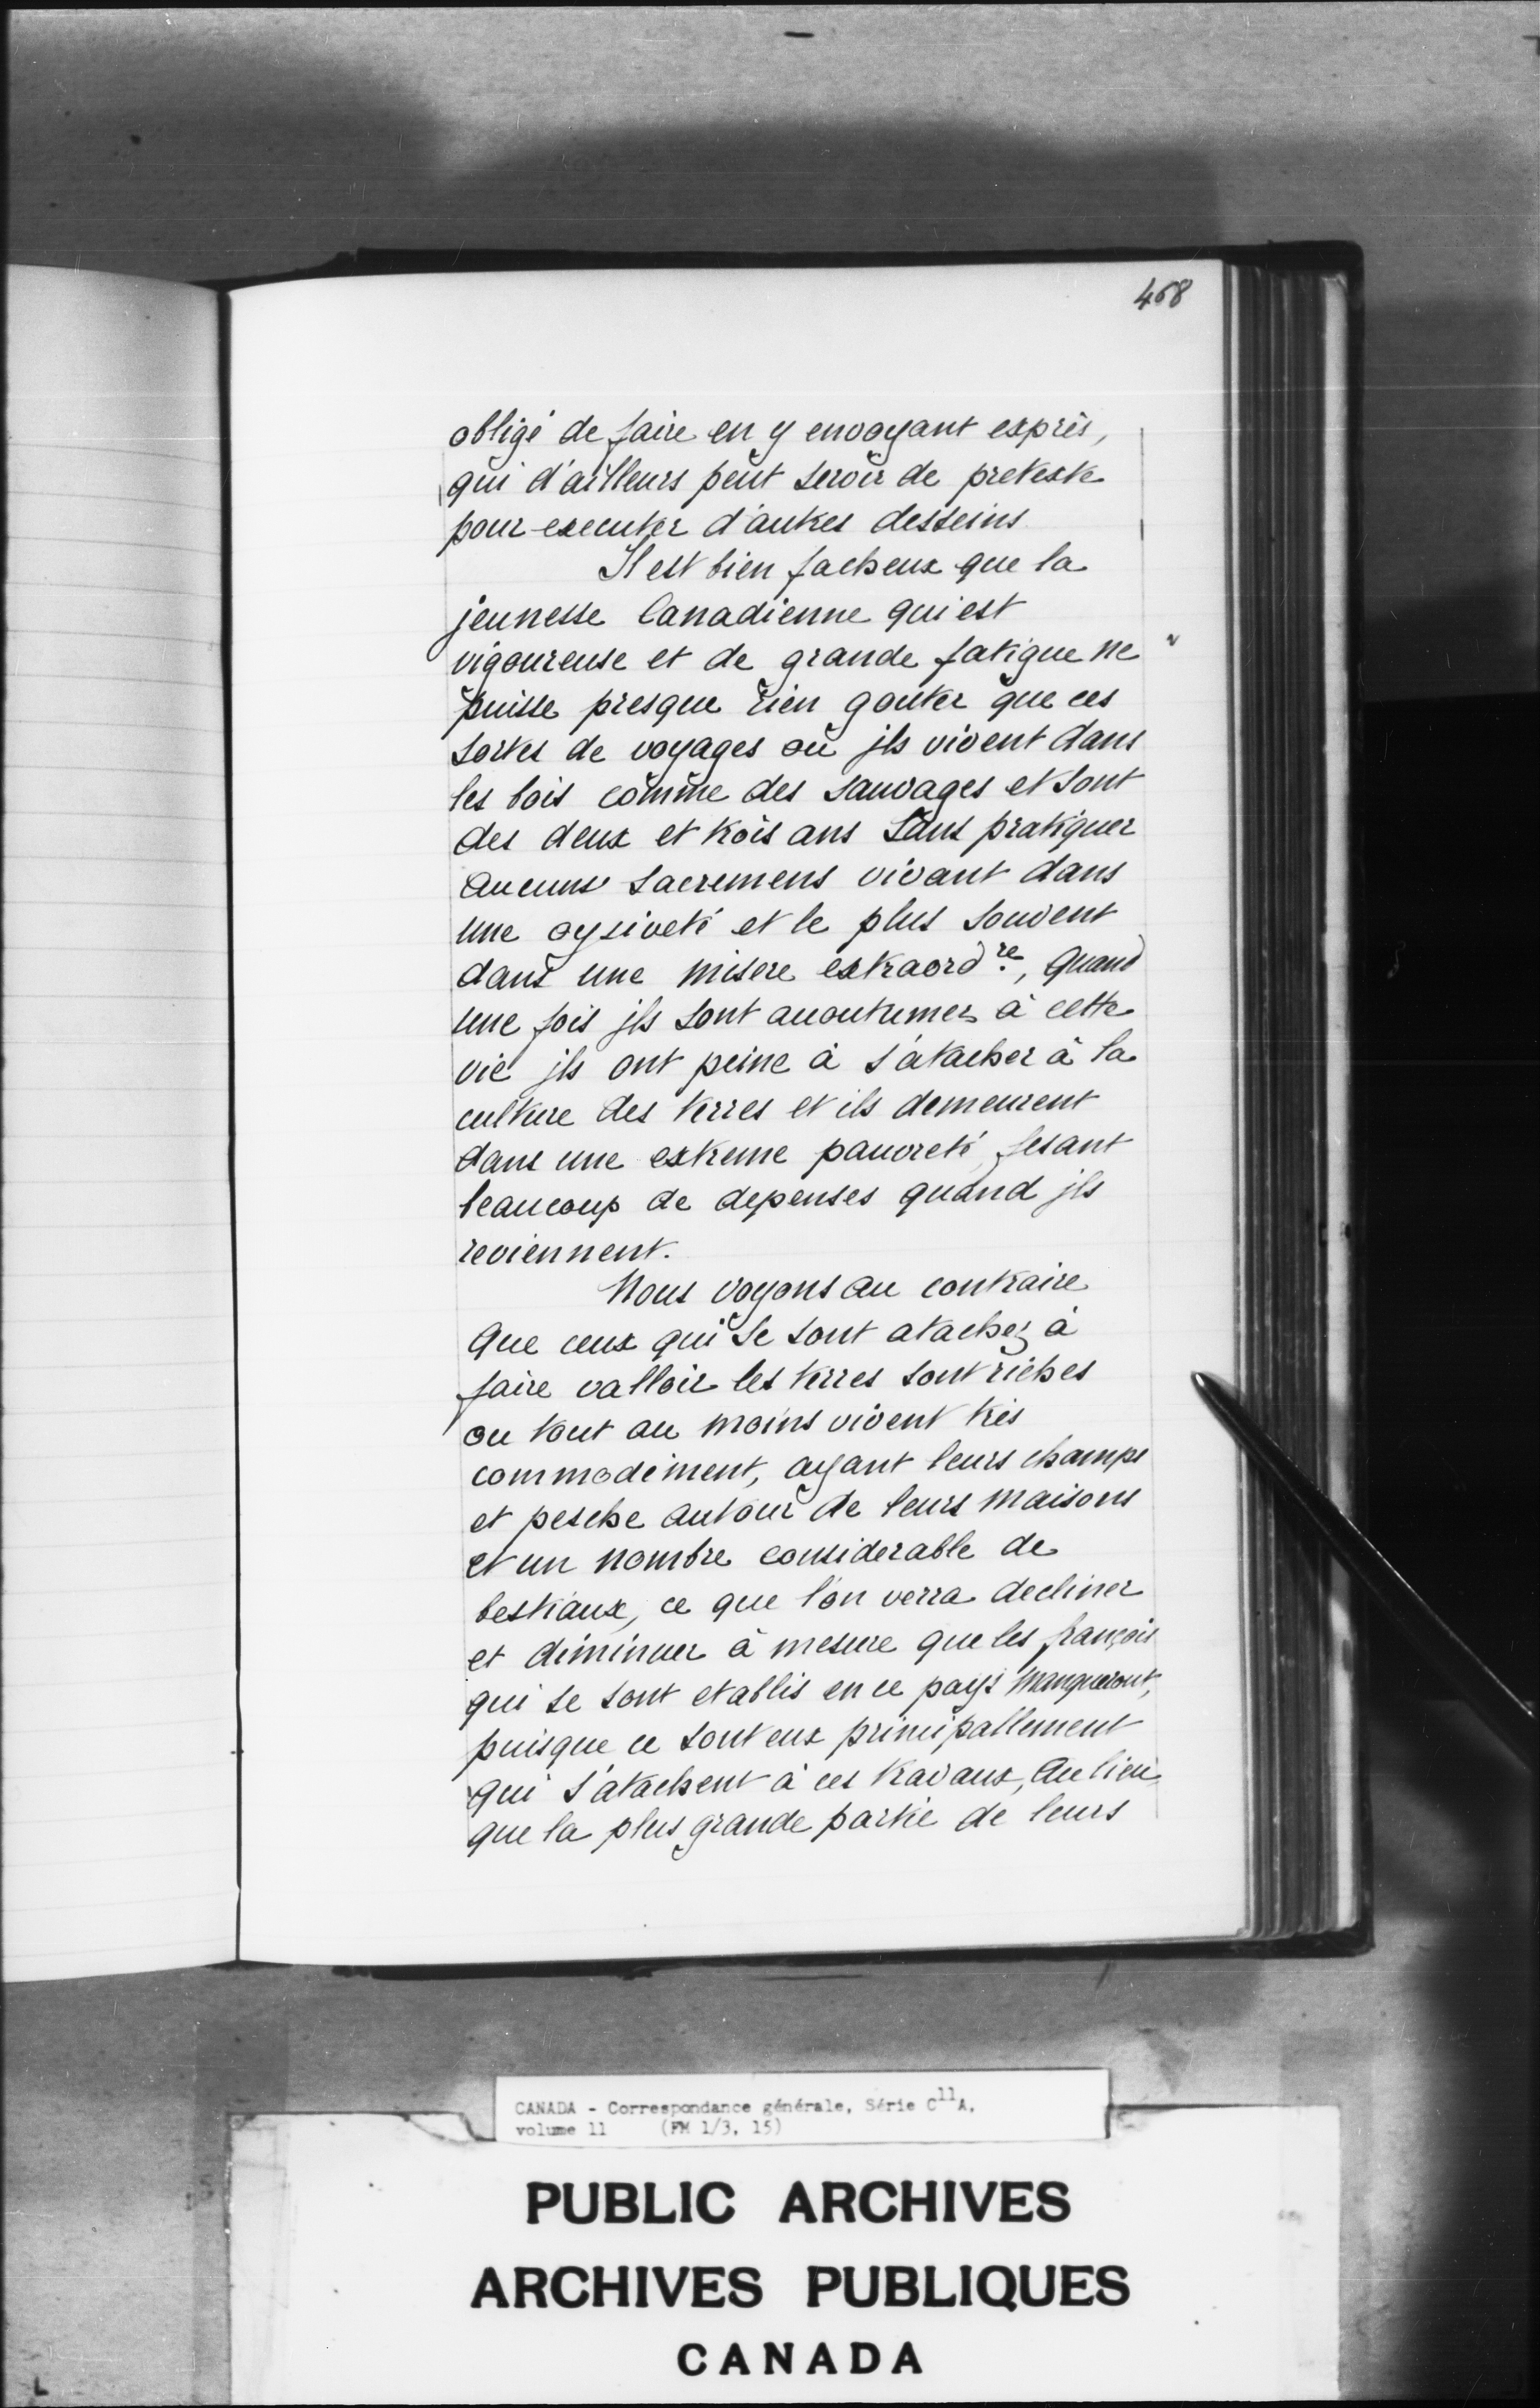 468
obligé de faire en y envoyant exprès,
qui d'ailleurs peut servir de preteste
pour executer d'autres desseins
Il est bien facheux que la
jeunesse Canadienne qui est
vigoureuse et de grande fatigue ne
puisse presque rien gouter que ces
sortes de voyages où jls vivent dans
les bois comme des sauvages et sont
des deux et trois ans sans pratiquer
aucuns sacremens vivant dans
une oysiveté et le plus souvent
dans une misere extraord.re, quand
une fois jls sont acoutumez à cette
vie jls ont peine à s'atacher à la
culture des terres et ils demeurent
dans une extreme pauvreté, fesant
beaucoup de depenses quand jls
reviennent.
Nous voyons au contraire
que ceux qui se sont atachez à
faire valloir les terres sont riches
ou tout au moins vivent très
commodément, ayant leurs champs
et pesche autour de leurs maisons
et un nombre considerable de
bestiaux, ce que l'on verra decliner
et diminuer à mesure que les françois
qui se sont etablis en ce pays manqueront,
puisque ce sont eux principallement
qui s'atachent à ces travaux, au lieu
que la plus grande partie de leurs
CANADA - Correspondance générale, Série C11A,
volume 11 (FM 1/3, 15)
PUBLIC ARCHIVES
ARCHIVES PUBLIQUES
CANADA